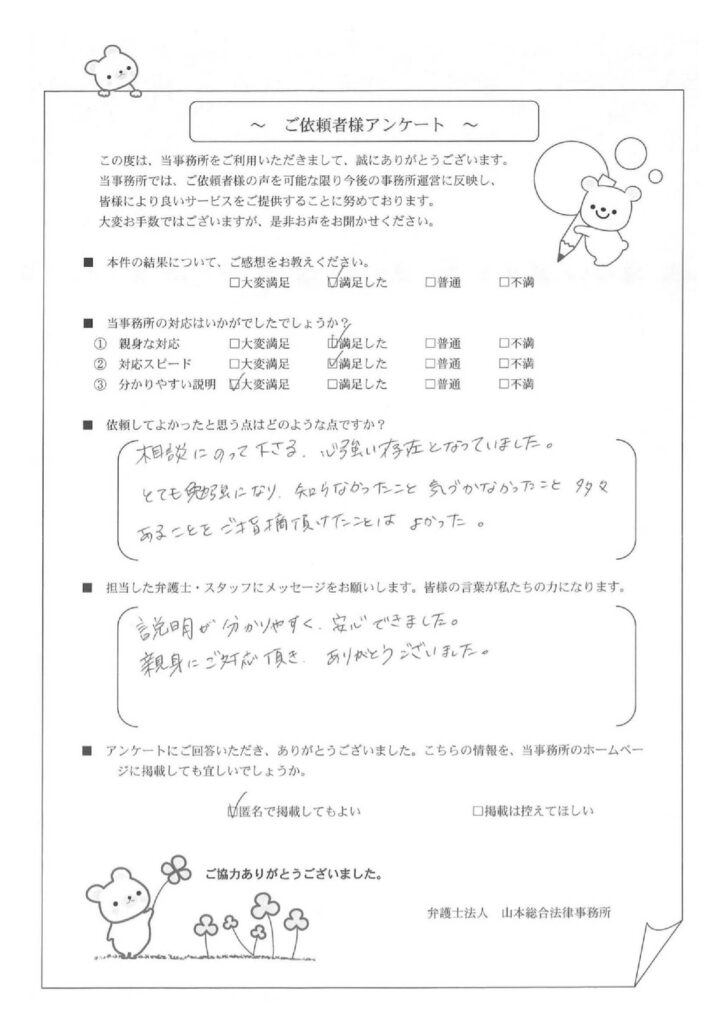 ～　ご依頼者様アンケート　～
この度は、当事務所をご利用いただきまして、誠にありがとうございます。
当事務所では、ご依頼者様の声を可能な限り今後の事務所運営に反映し、
皆様により良いサービスをご提供することに努めております。
大変お手数ではございますが、是非お声をお聞かせください。
■　本件の結果について、ご感想をお教えください。
□大変満足　☑満足した　□普通　□不満
■　当事務所の対応はいかがでしたでしょうか？
①　親身な対応　□大変満足　☑満足した　□普通　□不満
②　対応スピード　□大変満足　☑満足した　□普通　□不満
③　分かりやすい説明　☑大変満足　□満足した　□普通　□不満
■　依頼してよかったと思う点はどのような点ですか？
相談にのって下さる、心強い存在となっていました。
とても勉強になり、知らなかったこと 気づかなかったこと 多々
あることをご指摘頂けたことは よかった。
■　担当した弁護士・スタッフにメッセージをお願いします。皆様の言葉が私たちの力になります。
説明が分かりやすく、安心できました。
親身にご対応頂き、ありがとうございました。
■　アンケートにご回答いただき、ありがとうございました。こちらの情報を、当事務所のホームペー
ジに掲載しても宜しいでしょうか。
☑匿名で掲載してもよい　□掲載は控えてほしい
ご協力ありがとうございました。
弁護士法人　山本総合法律事務所